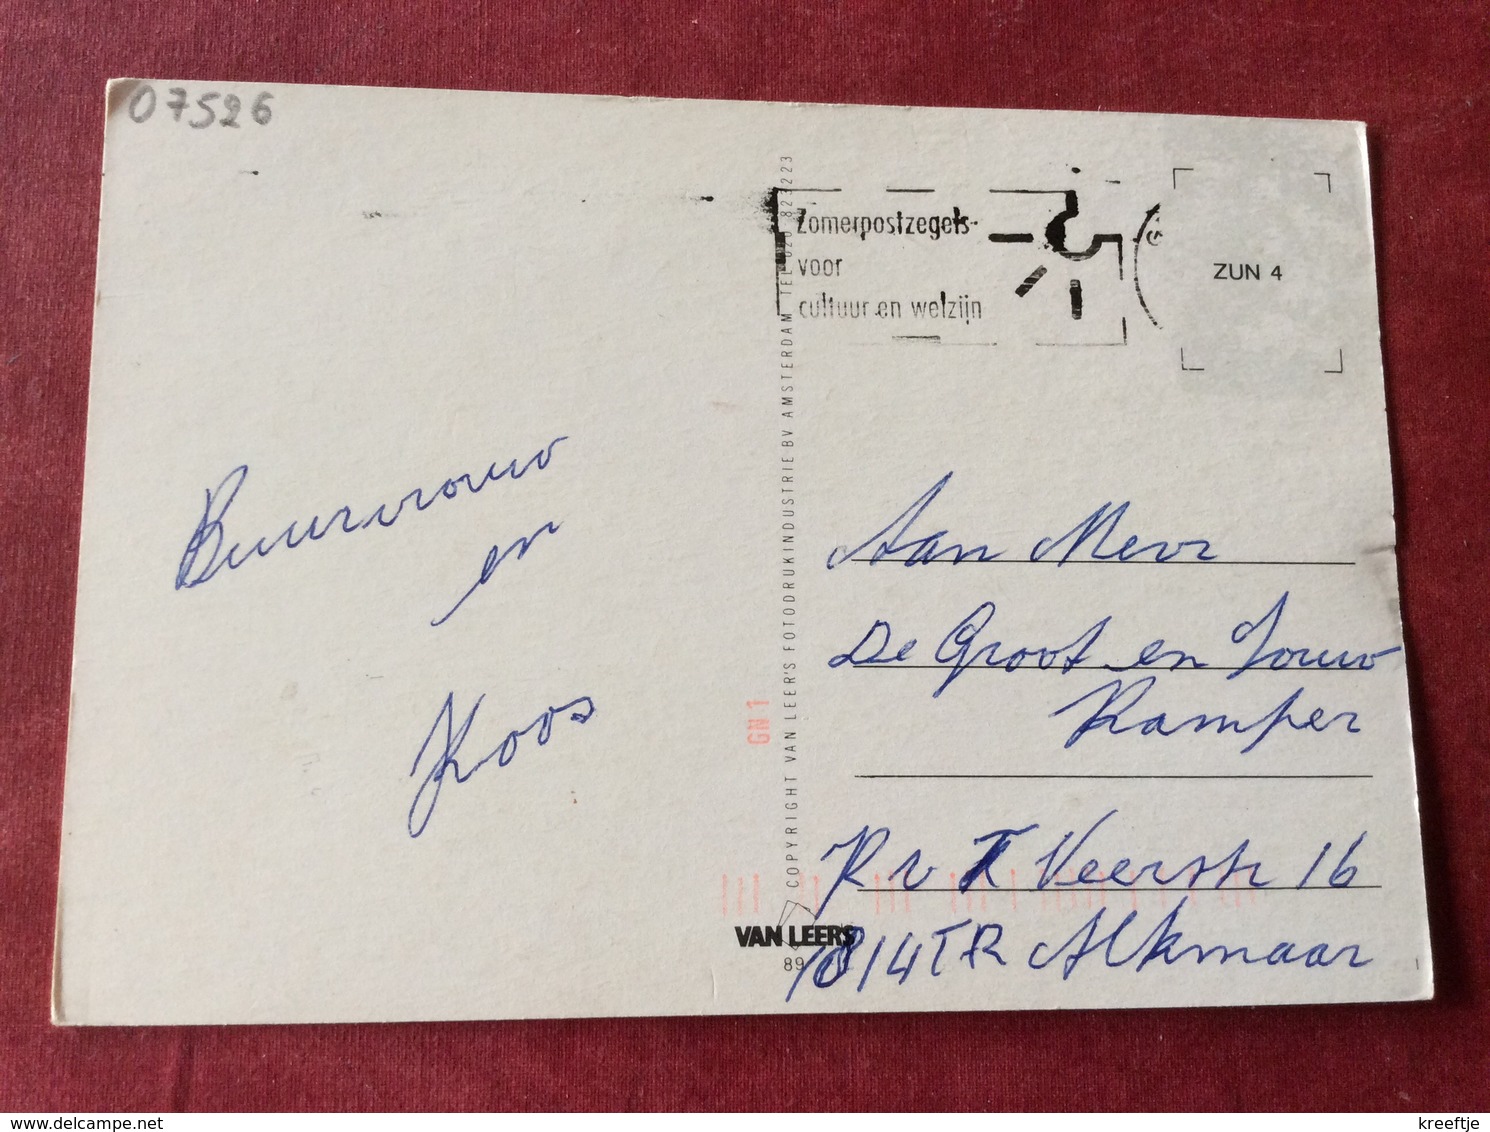 07526
Zomerpostzegels
voor
cultuur en welzijn
ZUN 4
Buurvrouw
en
Koos
COPYRIGHT VAN LEER'S FOTODRUKINDUSTRIE BV AMSTERDAM TEL. 020 823223
GN 1
Aan Mevr
De Groot en Jouw
Kamper
R v T Veerstr 16
1814TR Alkmaar
VAN LEERS
89
kreeftje